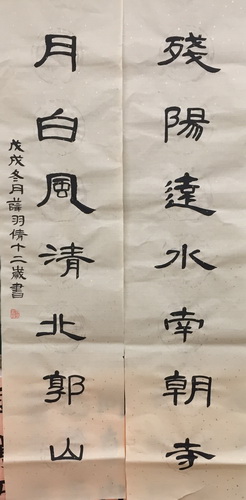 殘陽遠水南朝寺
月白風清北郭山
戊戌冬月薛羽倩十二歲書